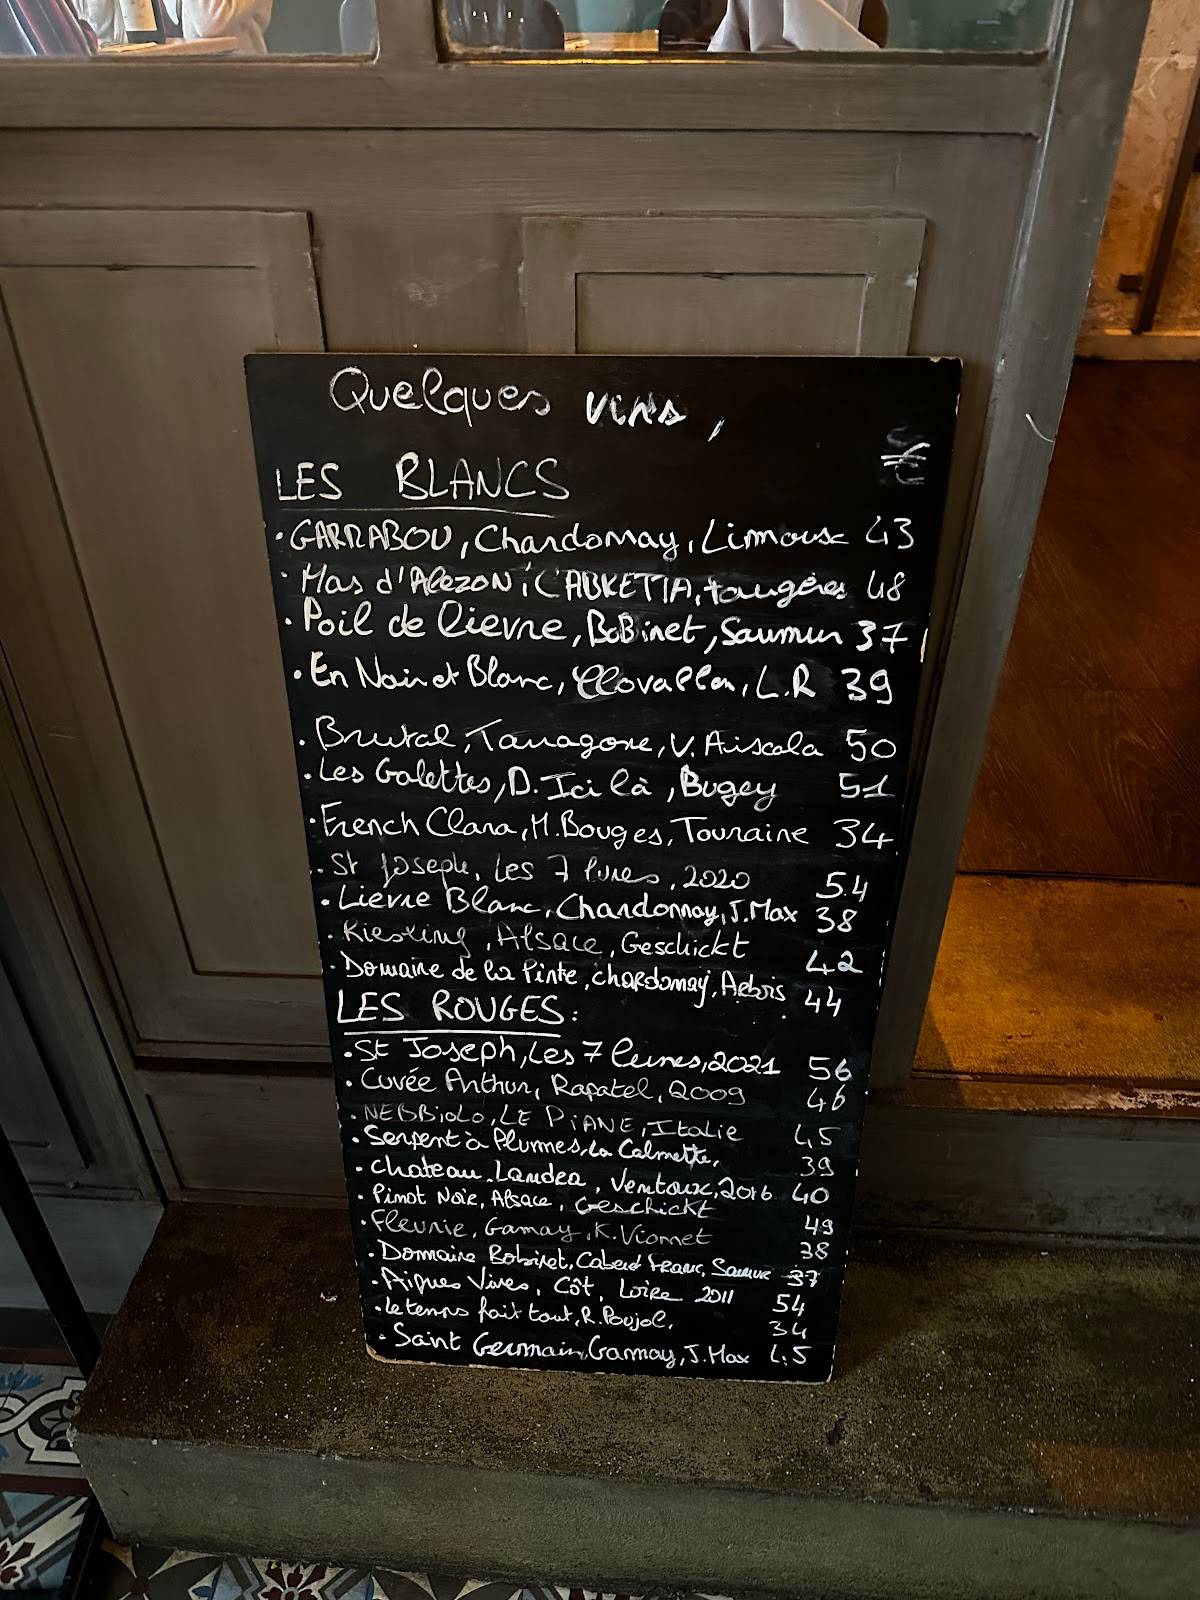 Quelques vins,
€
LES BLANCS
· GARRABOU, Chardonnay, Limouse 43
· Mas d'Alezon, CABRETTA, faugères 48
· Poil de lievre, BoBinet, Saumur 37
· En Noir et Blanc, Clovallon, L.R 39
· Brutal, Tarragone, V. Aiscala 50
· Les Galettes, D. Ici là, Bugey 51
· French Clara, M. Bouges, Touraine 34
· St Joseph, Les 7 lunes, 2020 54
· Lievre Blanc, Chardonnay, J. Max 38
· Riesling, Alsace, Geschickt 42
· Domaine de la Pinte, chardonnay, Arbois 44
LES ROUGES:
· St Joseph, Les 7 lunes, 2021 56
· Cuvée Arthur, Rapatel, 2009 46
· NEBBioLo, LE PiANE, Italie 45
· Serpent à Plumes, La Calmette, 39
· Chateau Landra, Ventoux, 2016 40
· Pinot Noir, Alsace, Geschickt 49
· Fleurie, Gamay, K. Vionnet 38
· Domaine Bobinet, Cabernet Franc, Saumur 37
· Aigues Vives, Côt, Loire 2011 54
· Le temps fait tout, R. Poujol, 34
· Saint Germain, Gamay, J. Max 45